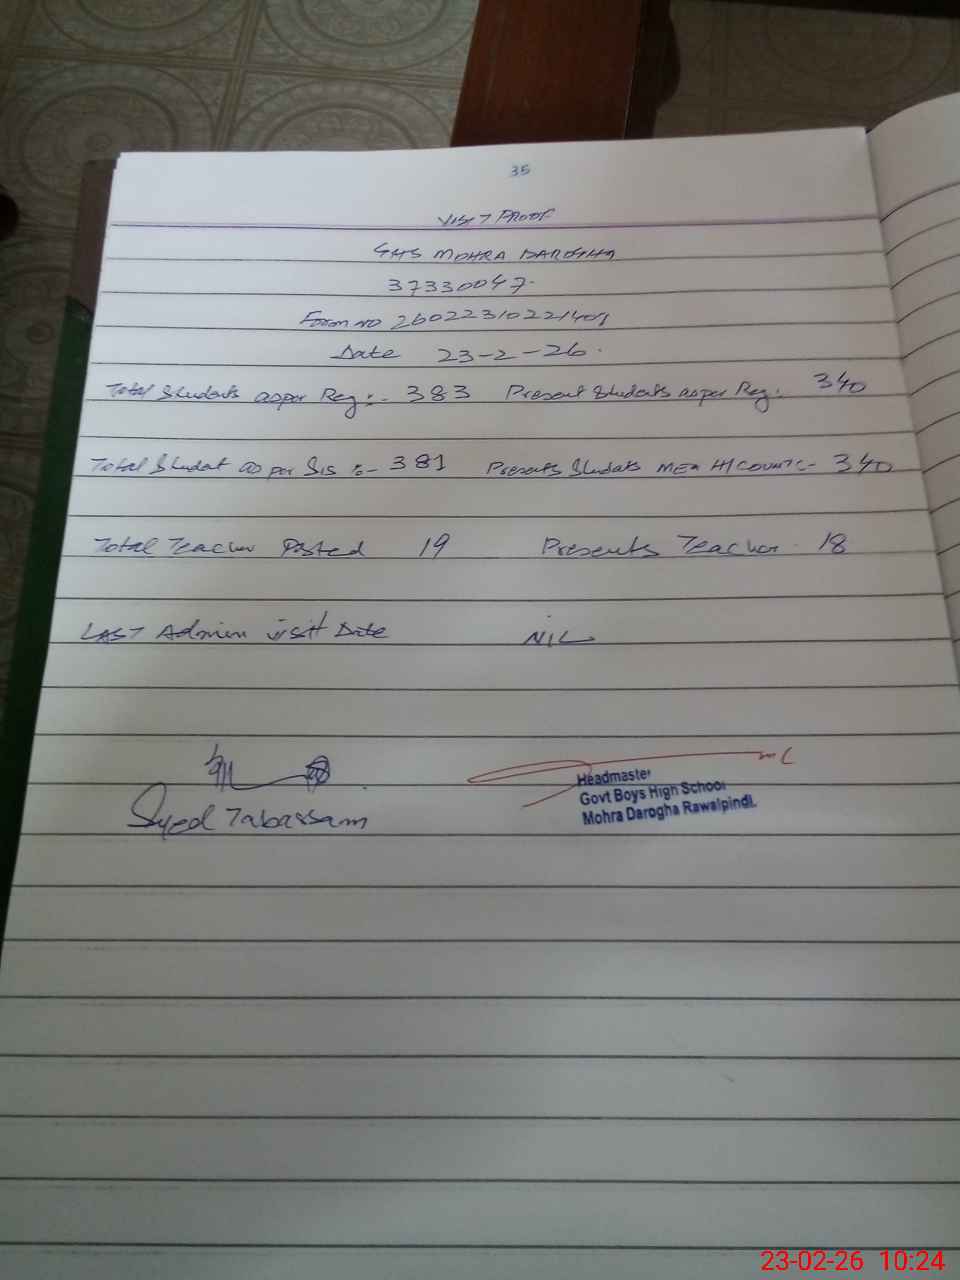 35
VISIT PROOF
GHS MOHRA DAROGHA
37330047.
Form no 26022310221401
Date 23-2-26.
Total Students as per Reg:- 383 Present Students as per Reg:. 340
Total Student as per SIS :- 381 Presents Students MEA H/COUNT:- 340
Total Teacher Posted 19 Presents Teacher - 18
LAST Admin visit Date NIL
Syed Tabassam
Headmaster
Govt Boys High School
Mohra Darogha Rawalpindi.
23-02-26 10:24